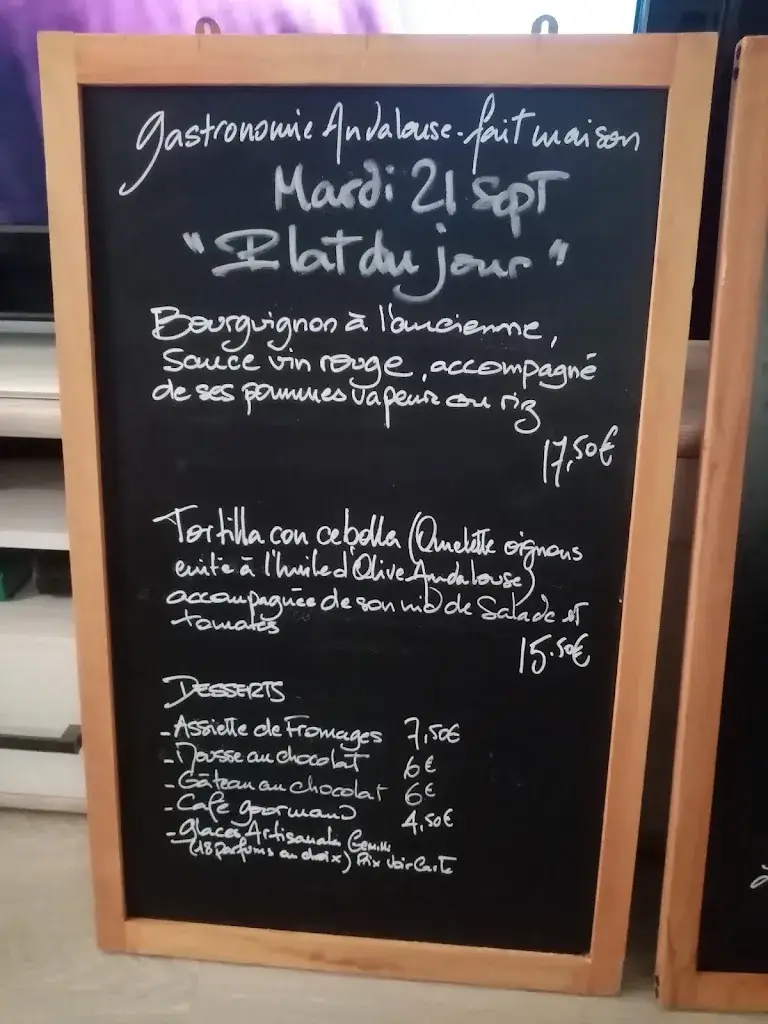 Gastronomie Andalouse - fait maison
Mardi 21 Sept
"Plat du jour"
Bourguignon à l'ancienne,
Sauce vin rouge, accompagné
de ses pommes vapeur ou riz
17,50€
Tortilla con cebolla (Omelette oignons
cuite à l'huile d'Olive Andalouse)
accompagnée de son nid de Salade et
tomates
15.50€
DESSERTS
- Assiette de Fromages 7,50€
- Mousse au chocolat 6€
- Gâteau au chocolat 6€
- Café gourmand 4,50€
- Glaces Artisanales
(18 parfums au choix) Prix voir Carte